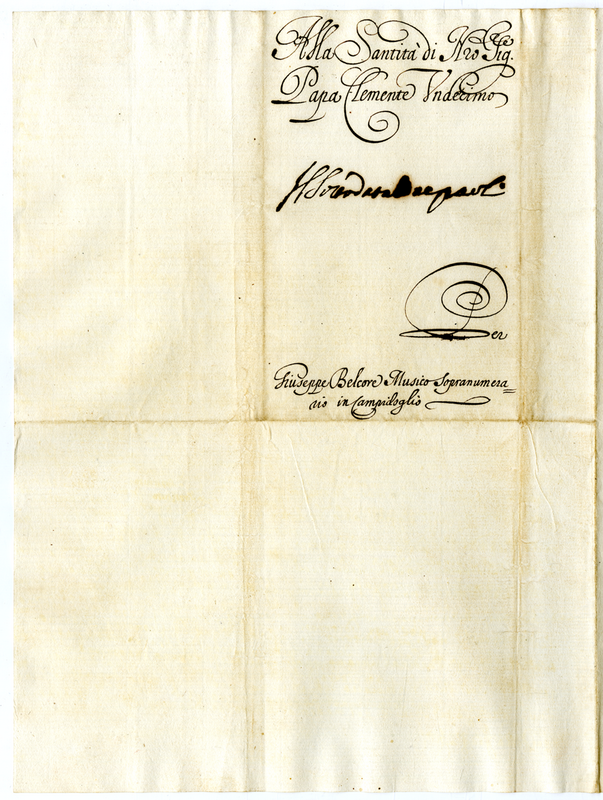 Alla Santità di Nro Sig.
Papa Clemente Undecimo
Per
Giuseppe Belcore Musico Sopranumera=
rio in Campidoglio